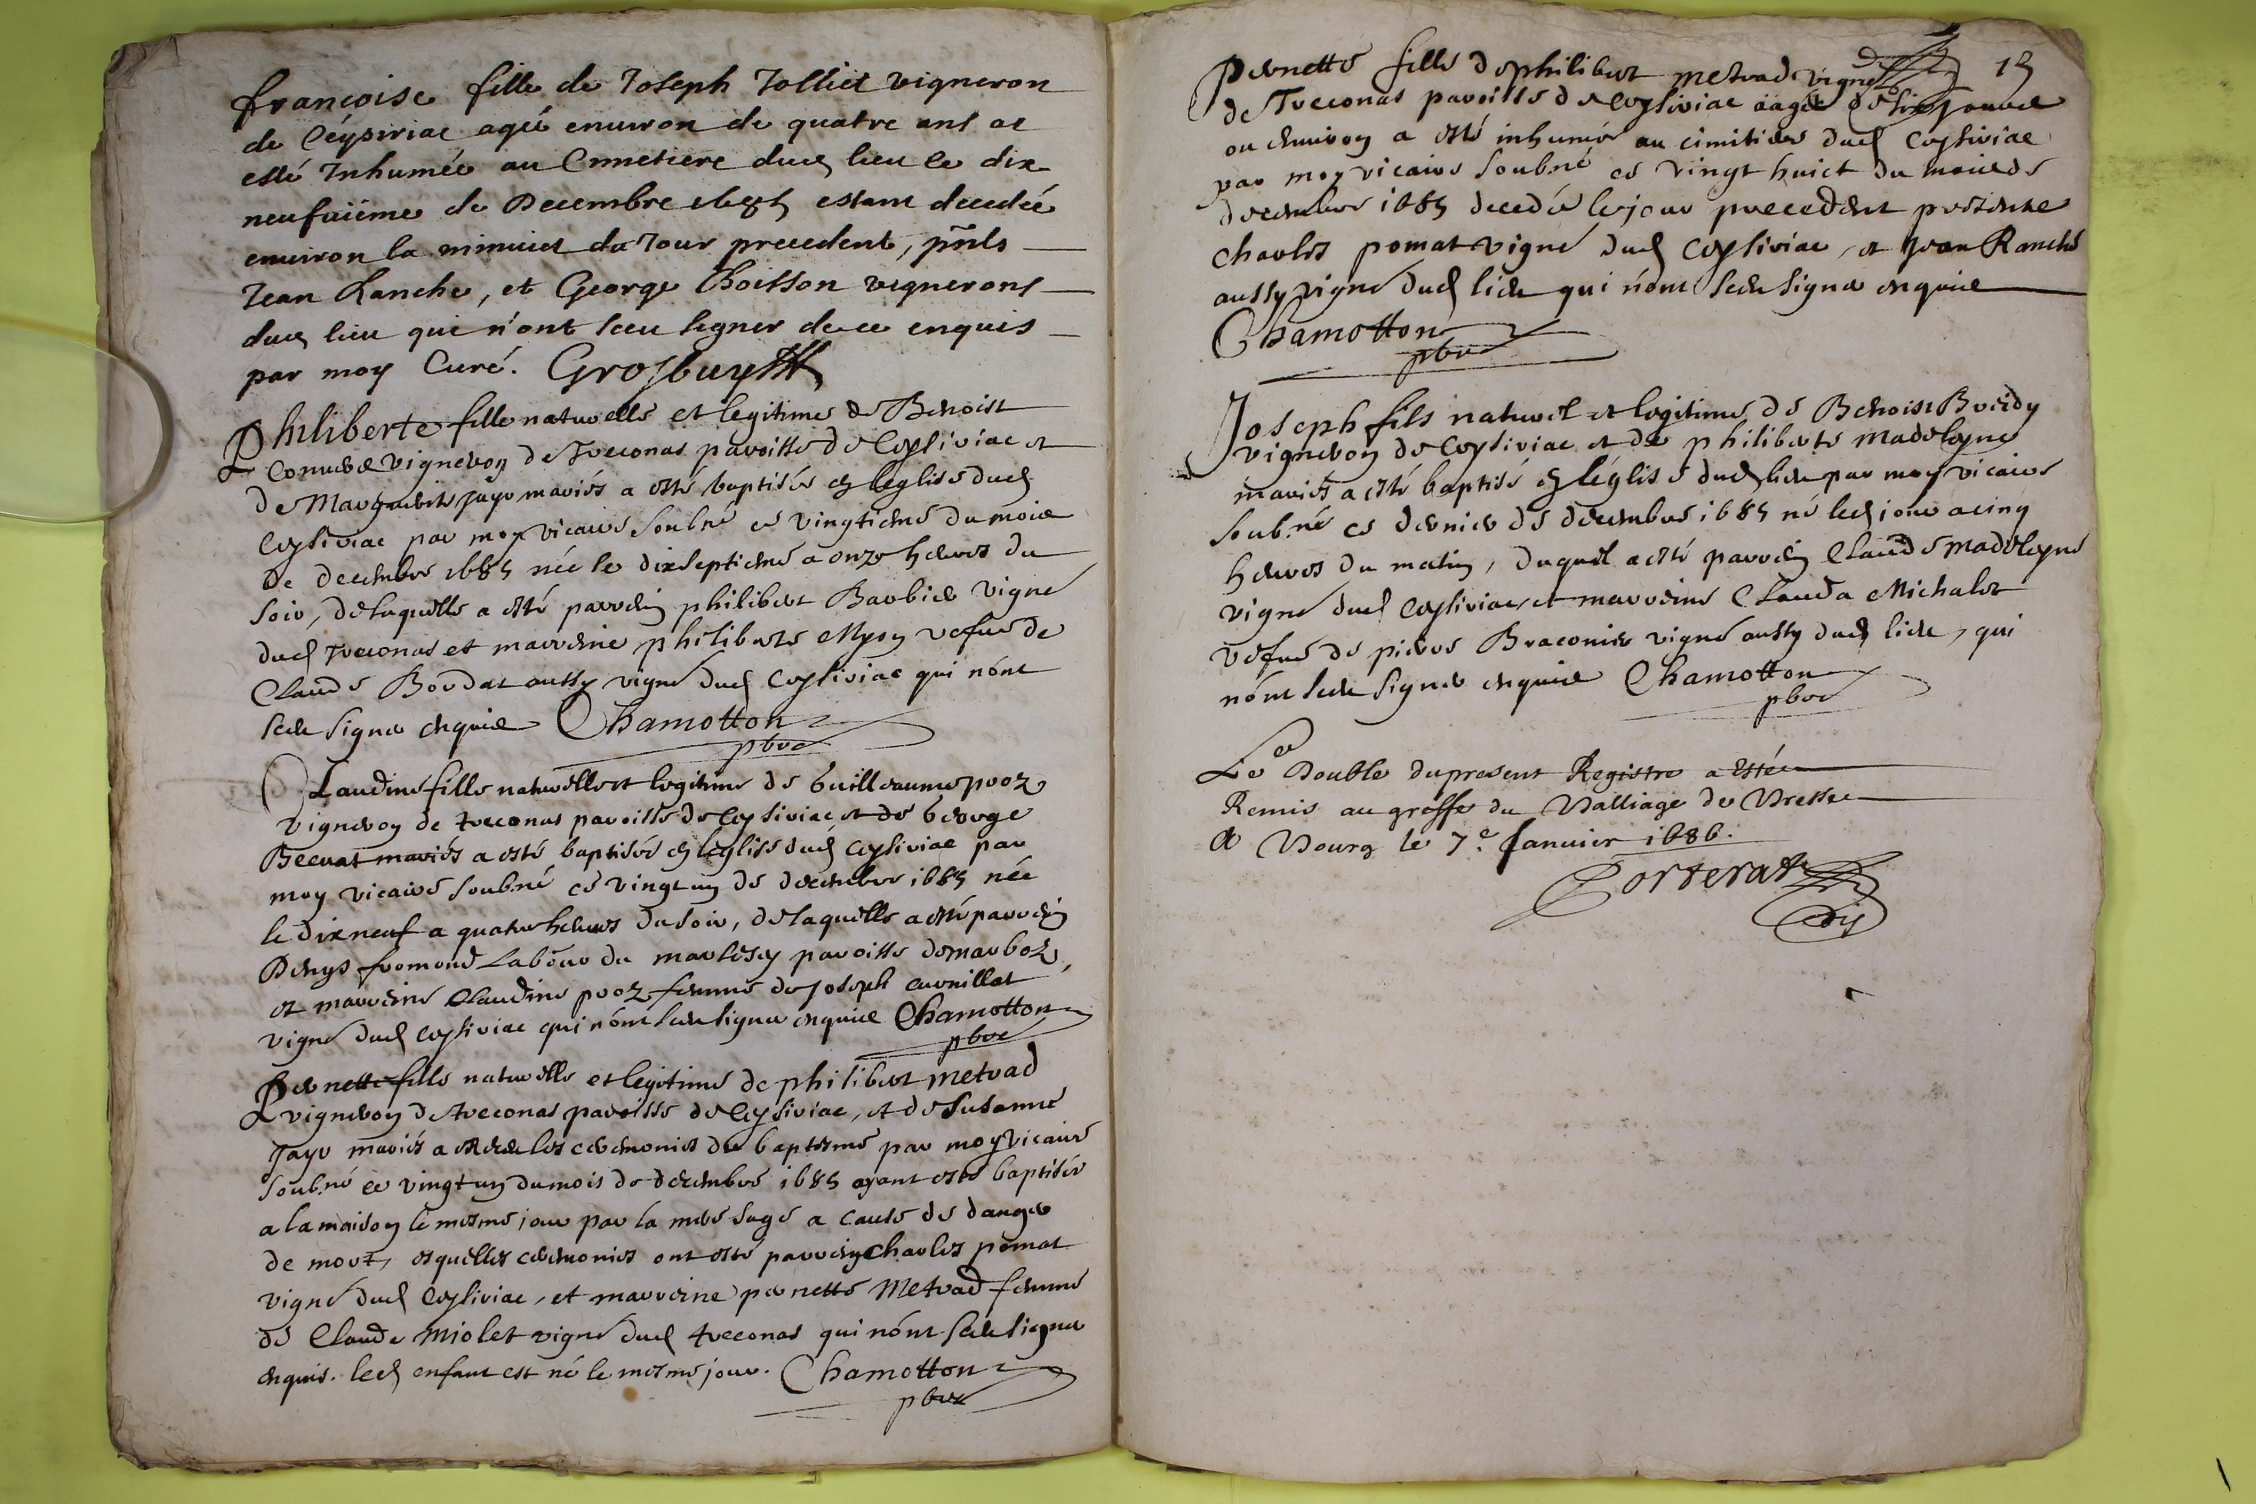 françoise fille de Joseph Jolliet vigneron
de Ceysiriac ageé enuiron de quatre ans at
esté Inhumée au Cimetiere dud lieu le dix
neufuiême de Decembre 1685 estant decedée
enuiron la minuict du Jour precedent, pñts
Jean Ranche, et George Boisson vignerons
dud lieu qui n'ont sceu signer de ce enquis
par moy Curé. Grosbuy
Philiberte fille naturelle et legitime de Benoist
vigneron de Treconas paroisse de Ceysiriac et
de Marguerite Jayr mariés a esté baptisée en leglise dud
Ceysiriac par moy vicaire soubné ce vingtiemé du mois
de decembre 1685 née le dixseptiemé a onze heures du
soir, de laquelle a esté parrein philibert Barbier vigné
dud Treconas et marreine philiberte Myon vefue de
Claude Bordat aussy vigné dud Ceysiriac qui nónt
sceu signer enquis Chamotton
pbre
Claudine fille naturelle et legitime de Guilleaume proz
vigneron de treconas paroisse de Ceysiriac et de George
Becuat mariés a esté baptisée en léglise dud Ceysiriac par
moy vicaire soubné ce vingt un de decembre 1685 née
le dix neuf a quatre heures du soir, de laquelle a esté parrein
Denys fromond Labour de marlesey paroisse de marboz,
et marreine Claudine proz femme de Joseph curnillat
vigné dud Ceysiriac qui nónt sceu signer enquis Chamotton
pbre
Pernette fille naturelle et legitime de philibert metrad
vigneron de treconas paroisse de Ceysiriac, et de Susanne
Jayr mariés a receu les ceremonies du baptesme par moy vicaire
soubné ce vingt un du mois de decembre 1685 ayant esté baptisée
a la maison le mesme jour par la mere sage a cause de danger
de mort, esquelles ceremonies ont esté parrein Charles pomat
vigné dud Ceysiriac, et marreine pernette Metrad femme
de Claude Miolet vigné dud treconas qui nónt sceu signer
enquis. led enfant est né le mesme jour. Chamotton
pbre
15
Pernette fille de philibert metrad vigne
de Treconas paroisse de Ceysiriac aagée de six jours
ou environ a esté inhumée au cimitiere dud Ceysiriac
par moy vicaire soubné ce vingt huict du mois de
decembre 1685 decedé le jour precedent presents
Charles pomat vigné dud Ceysiriac, et Jean Ranche
aussy vigné dud lieu qui nónt sceu signer enquis
Chamotton
pbre
Joseph fils naturel et legitime de Benoist Breidy
vigneron de Ceysiriac et de philiberte Madeleyne
mariés a esté baptisé en léglise dud lieu par moy vicaire
soubné ce dernier de decembre 1685 né led jour a cinq
heures du matin, duquel a esté parrein Claude Madeleyne
vigné dud Ceysiriac et marreine Clauda Michalet
vefue de pierre Braconier vigné aussy dud lieu, qui
nónt sceu signer enquis Chamotton
pbre
Le Double du present Registre a Esté
Remis au greffe du Balliage de Bresse
A Bourg le 7e Januier 1686.
Corterat